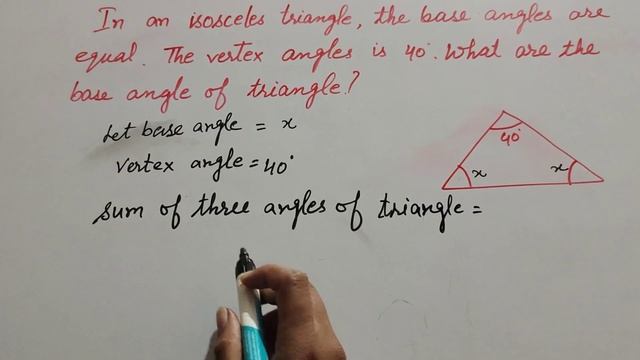 In an isosceles triangle, the base angles are
equal. The vertex angles is 40°. What are the
base angle of triangle?
Let base angle = x
vertex angle = 40°
sum of three angles of triangle =
40°
x
x